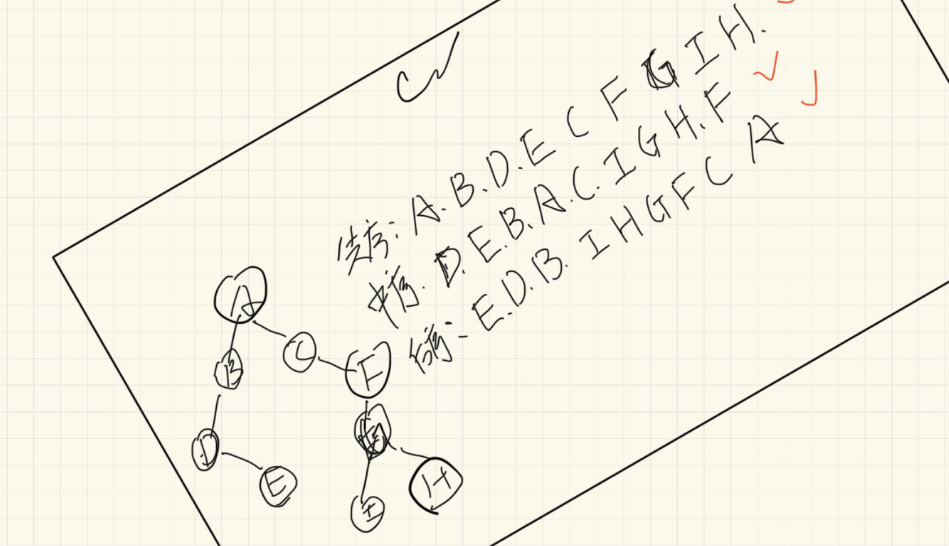 先序: A.B.D.E C F G I H.
中序. D.E.B.A.C.I G H.F
后序: E.D.B. I H G F C A
A
B
C
F
D
E
G
H
I